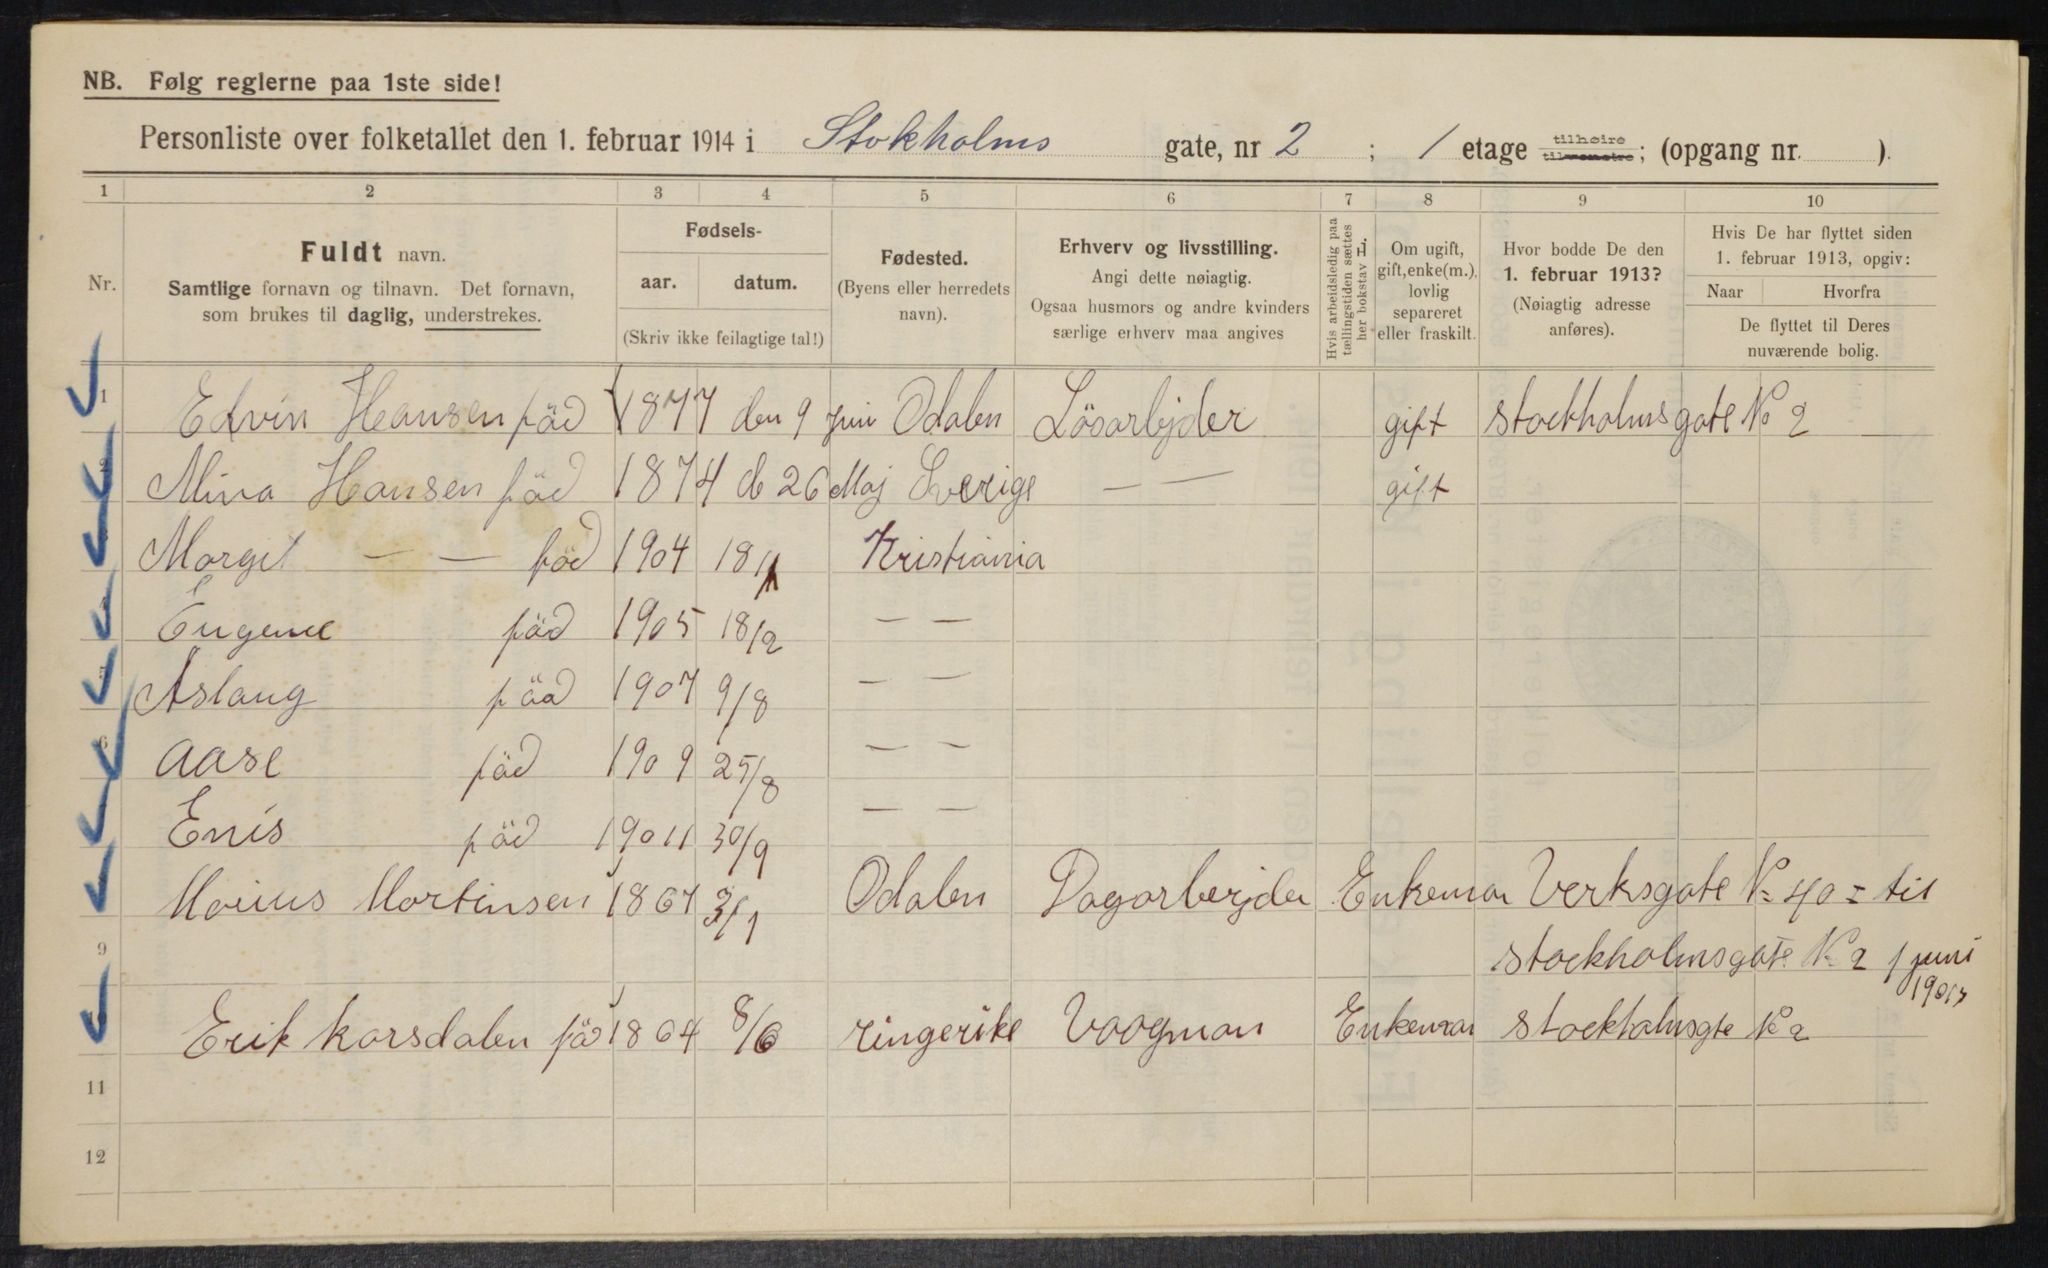 NB. Følg reglerne paa 1ste side!
Personliste over folketallet den 1. februar 1914 i Stokholms gate, nr 2 ; 1 etage tilhøire tilvenstre; (opgang nr. ).
1 2 3 4 5 6 7 8 9 10
Nr.
Fuldt navn.
Samtlige fornavn og tilnavn. Det fornavn,
som brukes til daglig, understrekes.
Fødsels-
aar. datum.
(Skriv ikke feilagtige tal!)
Fødested.
(Byens eller herredets
navn).
Erhverv og livsstilling.
Angi dette nøiagtig.
Ogsaa husmors og andre kvinders
særlige erhverv maa angives
Hvis arbeidsledig paa
tællingstiden sættes
her bokstav L.
Om ugift,
gift, enke(m.),
lovlig
separeret
eller fraskilt.
Hvor bodde De den
1. februar 1913?
(Nøiagtig adresse
anføres).
Hvis De har flyttet siden
1. februar 1913, opgiv:
Naar Hvorfra
De flyttet til Deres
nuværende bolig.
1 Edvin Hansen föd 1877 den 9 juni Odalen Lösarbjder gift Stockholmsgate No 2
2 Mina Hansen föd 1874 d 26 Maj Sverige — — gift
Margit — — föd 1904 18/1 Kristiania
Eugene föd 1905 18/2 — —
Aslaug föd 1907 9/8 — —
6 Aase föd 1909 25/8 — —
Enis föd 19011 30/9 — —
Marius Martinsen 1867 3/1 Odalen Dagarbejder Enkeman Verksgate No 40 = til
9 Stockholmsgate No 2 1 juni
Erik Korsdalen fö 1864 8/6 ringerike Voogman Enkeman Stockholmsgte No 2
11
12